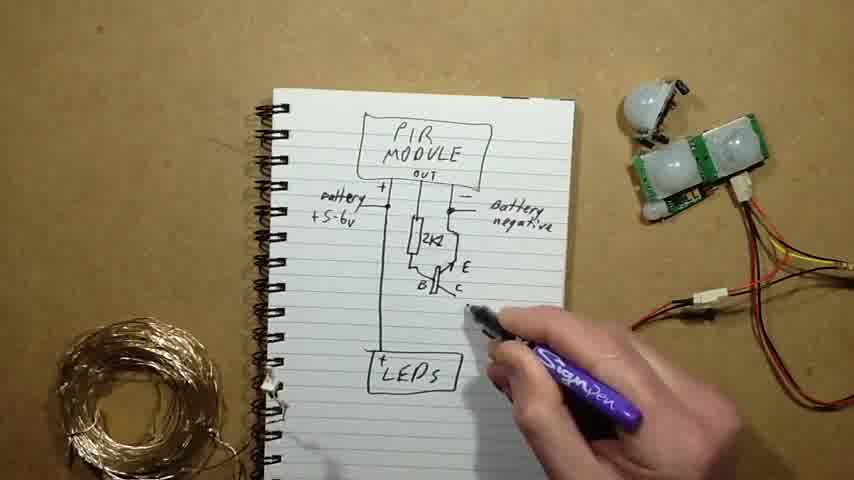 PIR
MODULE
OUT
+ −
Battery
+5-6v
Battery
negative
2K2
E
B C
+
LEDs
Signpen